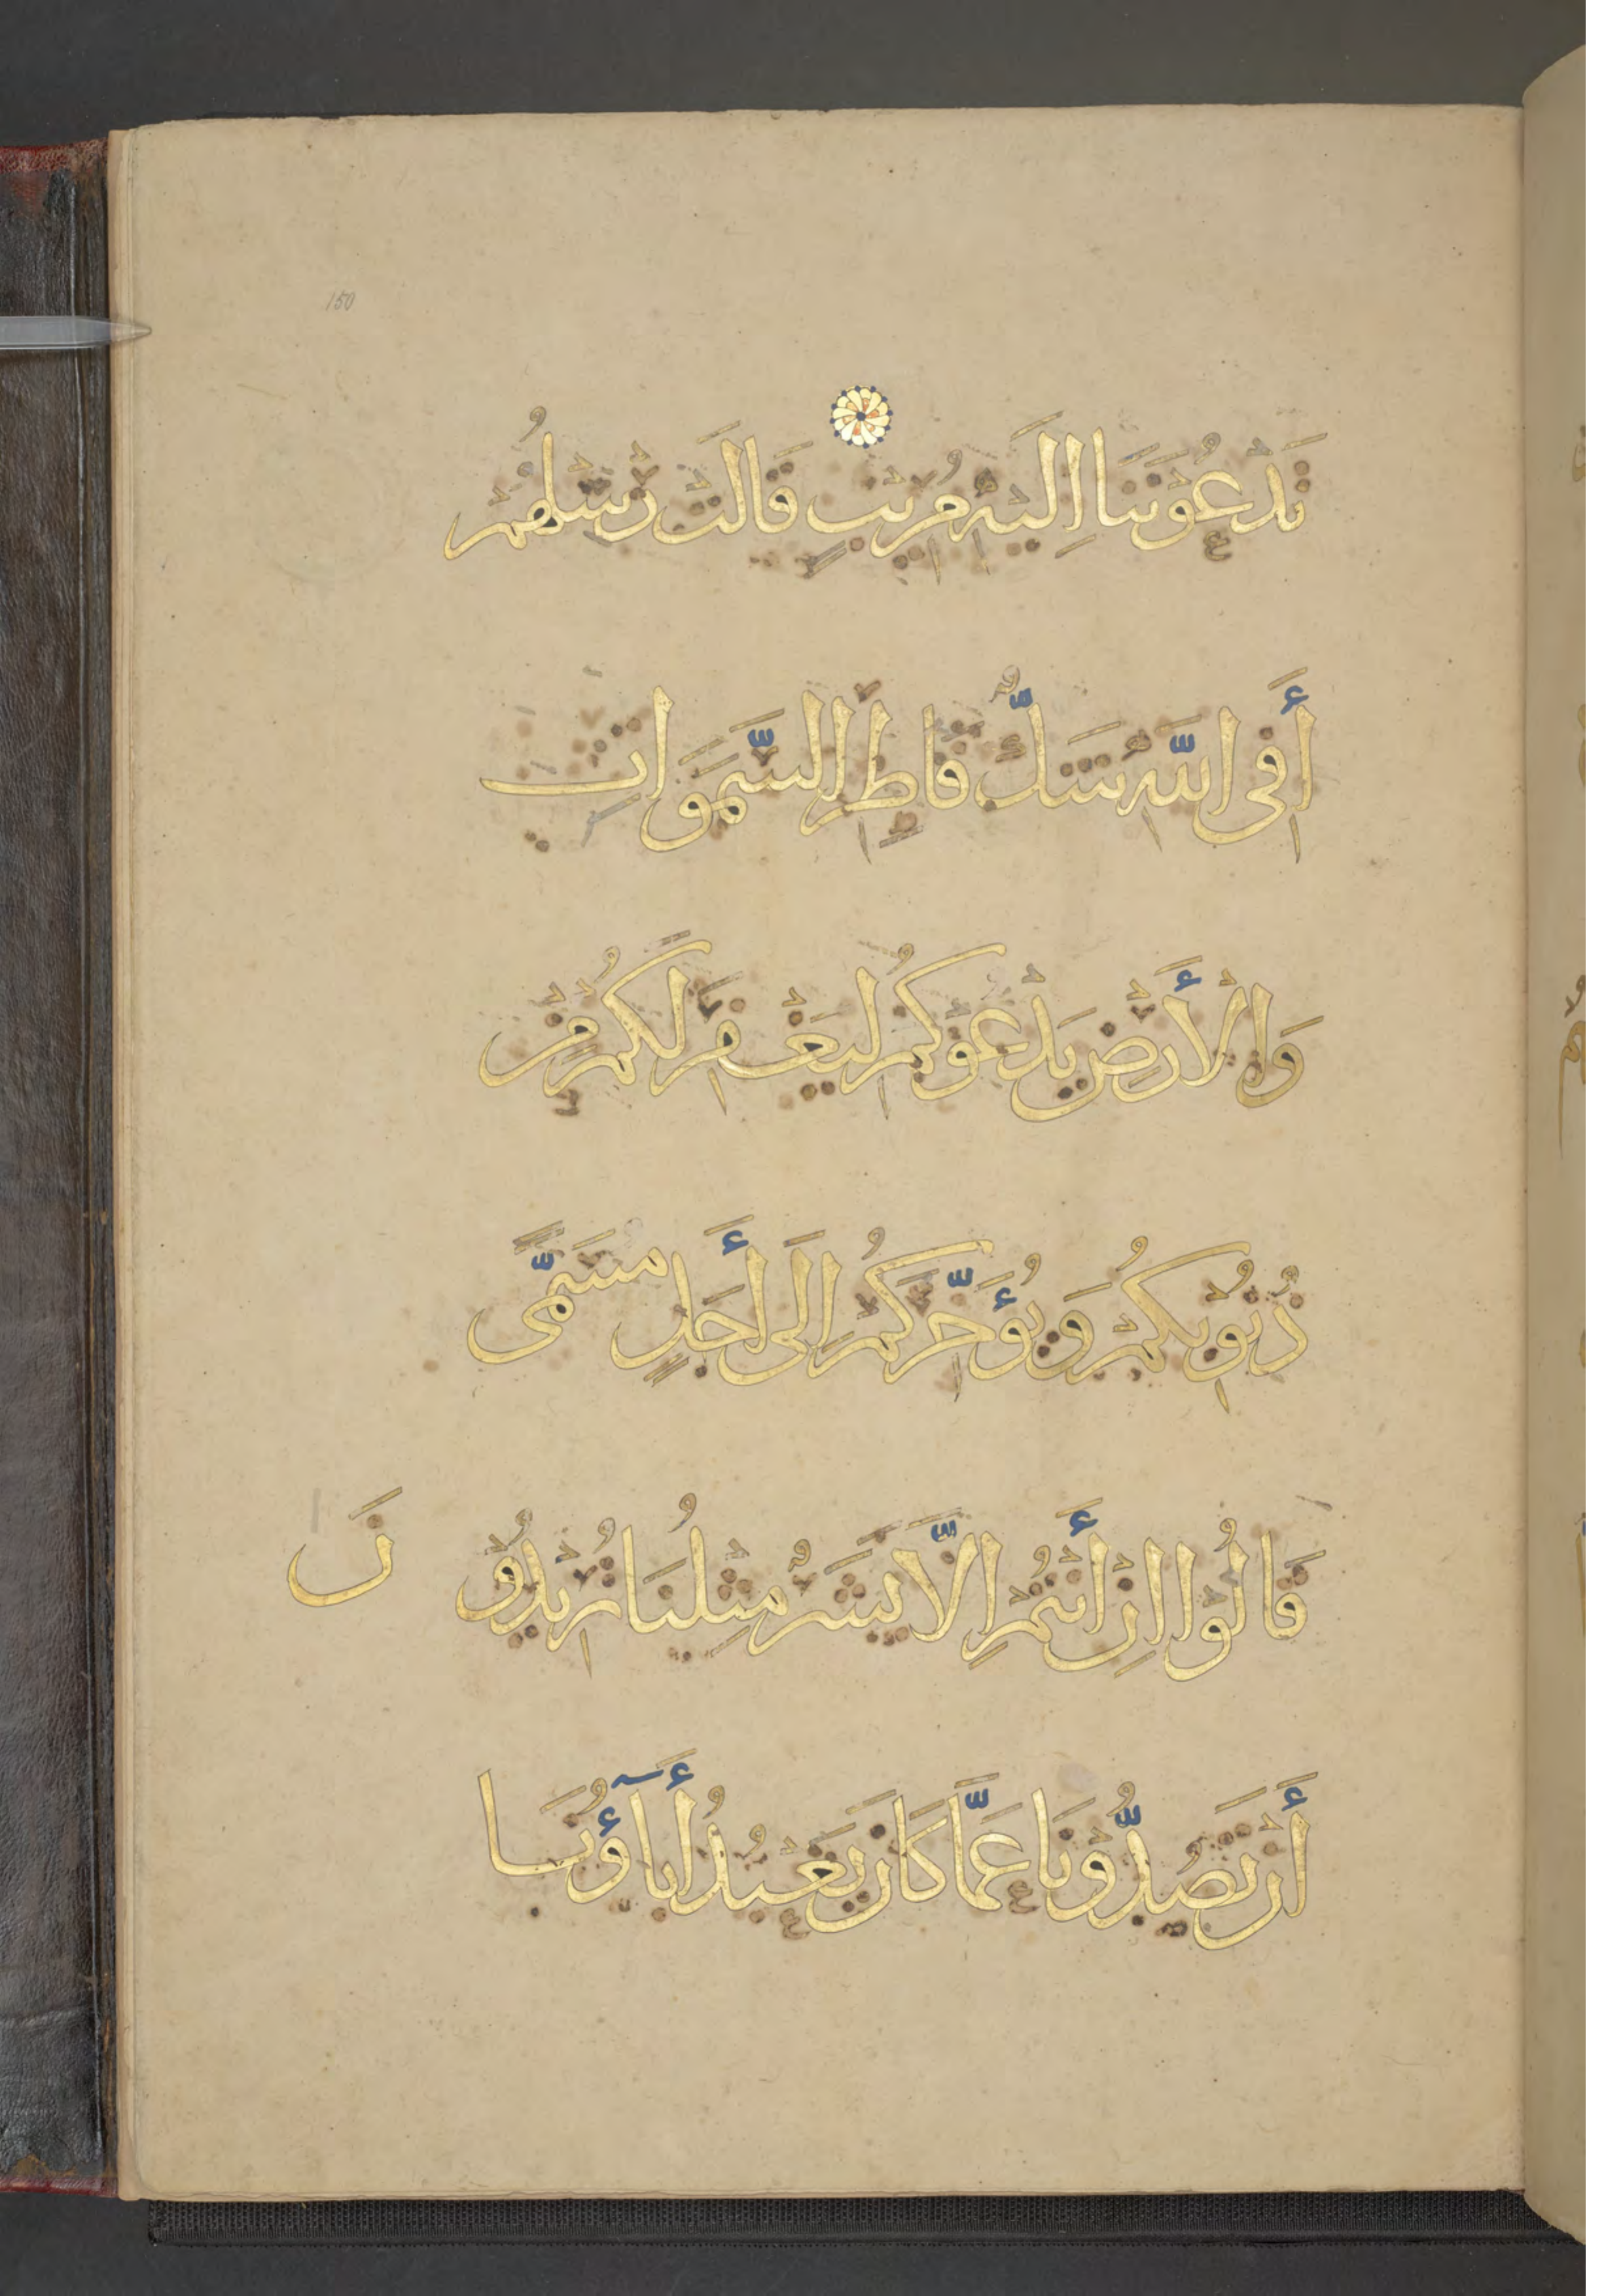 150
تَدْعُوْنَنَا اِلَيْهِ مُرِيْبٍ قَالَتْ رُسُلُهُمْ
أَفِى اللَّهِ شَكٌّ فَاطِرِ السَّمَوَاتِ
وَالْأَرْضِ يَدْعُوْكُمْ لِيَغْفِرَ لَكُمْ مِنْ
ذُنُوْبِكُمْ وَيُؤَخِّرَكُمْ اِلَى أَجَلٍ مُسَمًّى
قَالُوْا اِنْ أَنْتُمْ اِلَّا بَشَرٌ مِثْلُنَا تُرِيْدُوْنَ
أَنْ تَصُدُّوْنَا عَمَّا كَانَ يَعْبُدُ أٰبَآؤُنَا